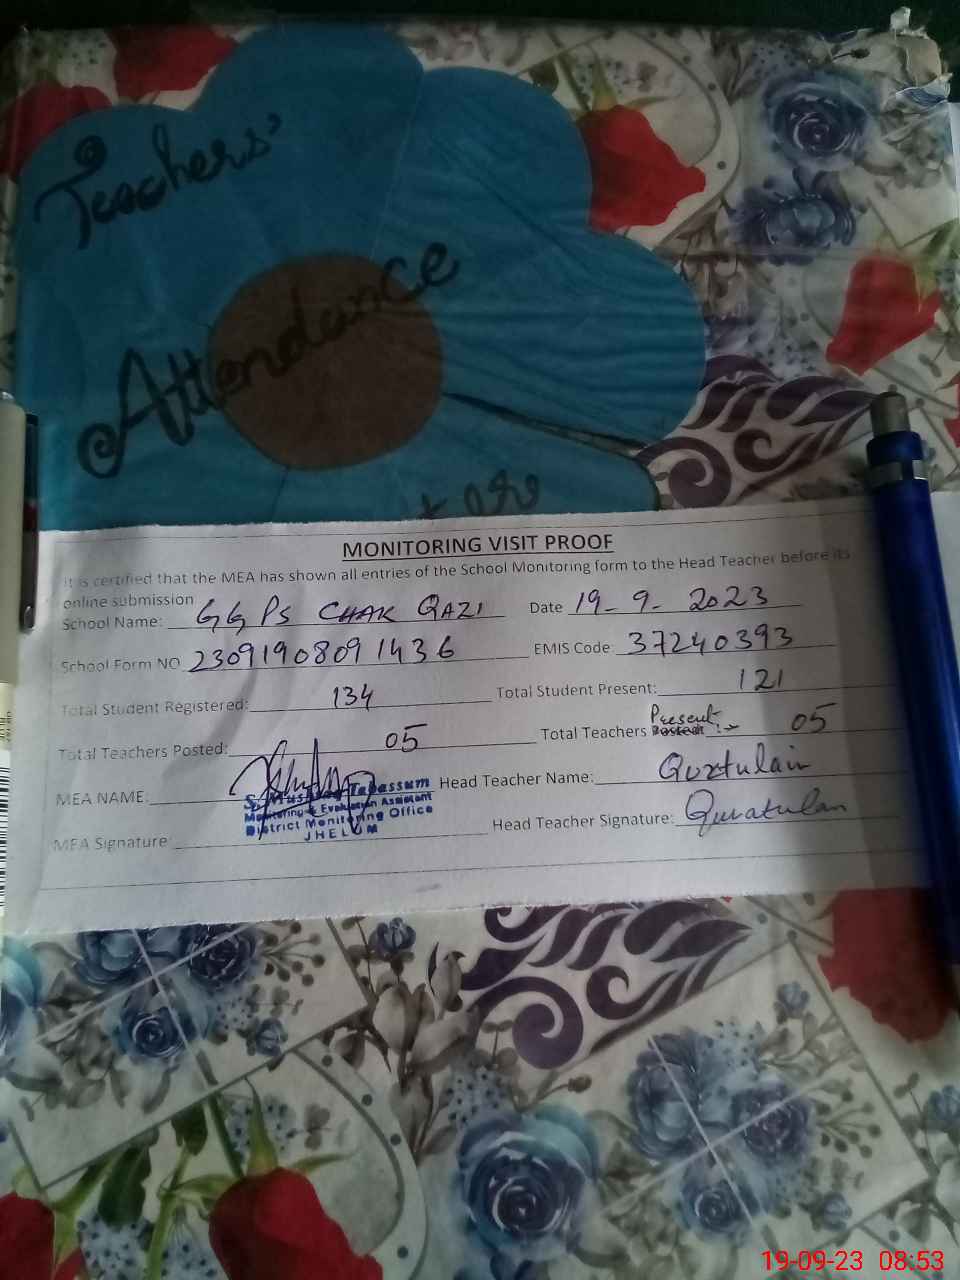 Teachers'
Attendance
MONITORING VISIT PROOF
It is certified that the MEA has shown all entries of the School Monitoring form to the Head Teacher before its
online submission
School Name: GGPS CHAK QAZI Date 19-9-2023
School Form NO 23091908091436 EMIS Code 37240393
Total Student Registered: 134 Total Student Present: 121
Total Teachers Posted: 05 Total Teachers Present :- 05
MEA NAME: Head Teacher Name: Quratulain
Tabassum
Monitoring & Evaluation Assistant
District Monitoring Office
JHELUM
MEA Signature Head Teacher Signature: Quratulain
19-09-23 08:53